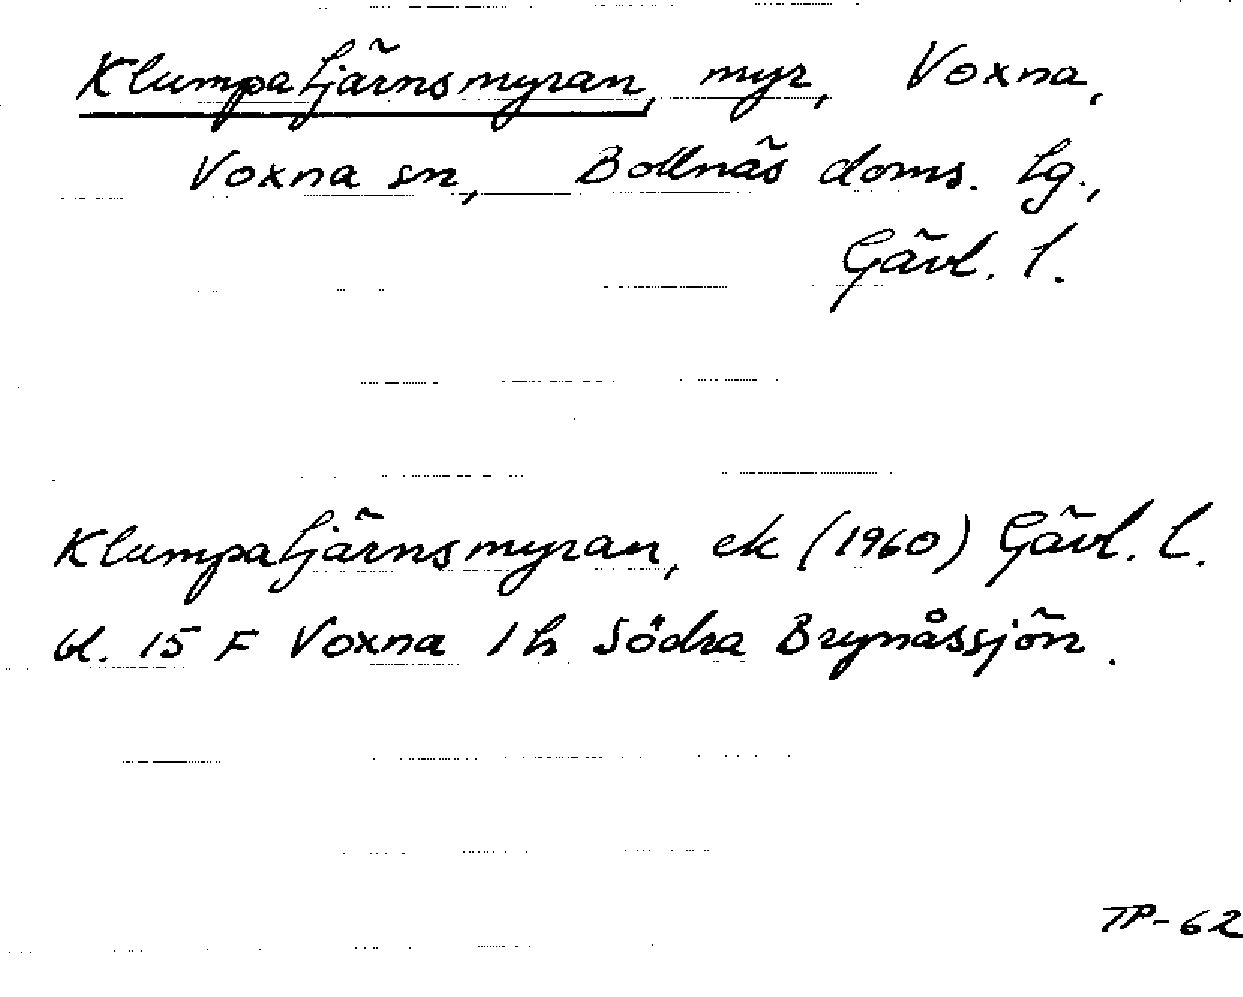 Klumpatjärnsmyran, myr, Voxna,
Voxna sn, Bollnäs doms. lg.,
Gävl. l.
Klumpatjärnsmyran, ek (1960) Gävl. l.
bl. 15 F Voxna 1 h Södra Brynåssjön.
TP-62